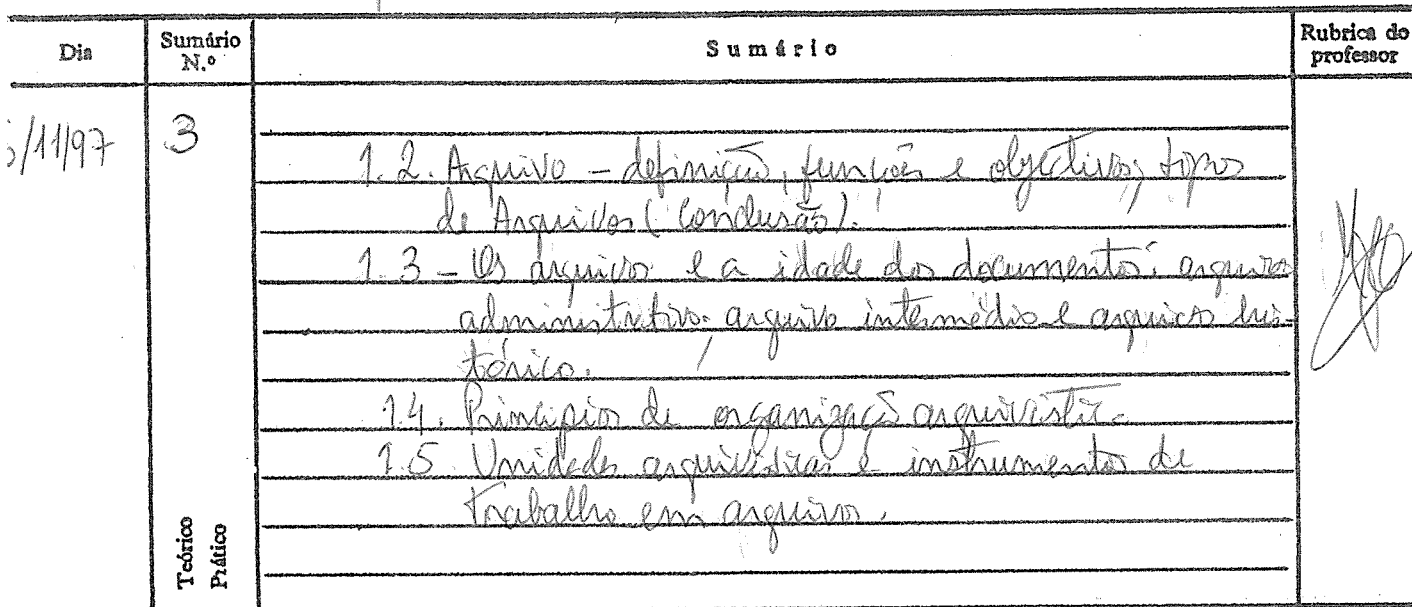 Dia
Sumário N.º
Sumário
Rubrica do professor
/11/97
3
1.2. Arquivo – definição, funções e objectivos; tipos
de Arquivos (Conclusão).
1.3 – Os arquivos e a idade dos documentos: arquivo
administrativo, arquivo intermédio e arquivo his-
tórico.
1.4. Princípios de organização arquivística
1.5 Unidades arquivísticas e instrumentos de
trabalho em arquivo.
Teórico
Prático